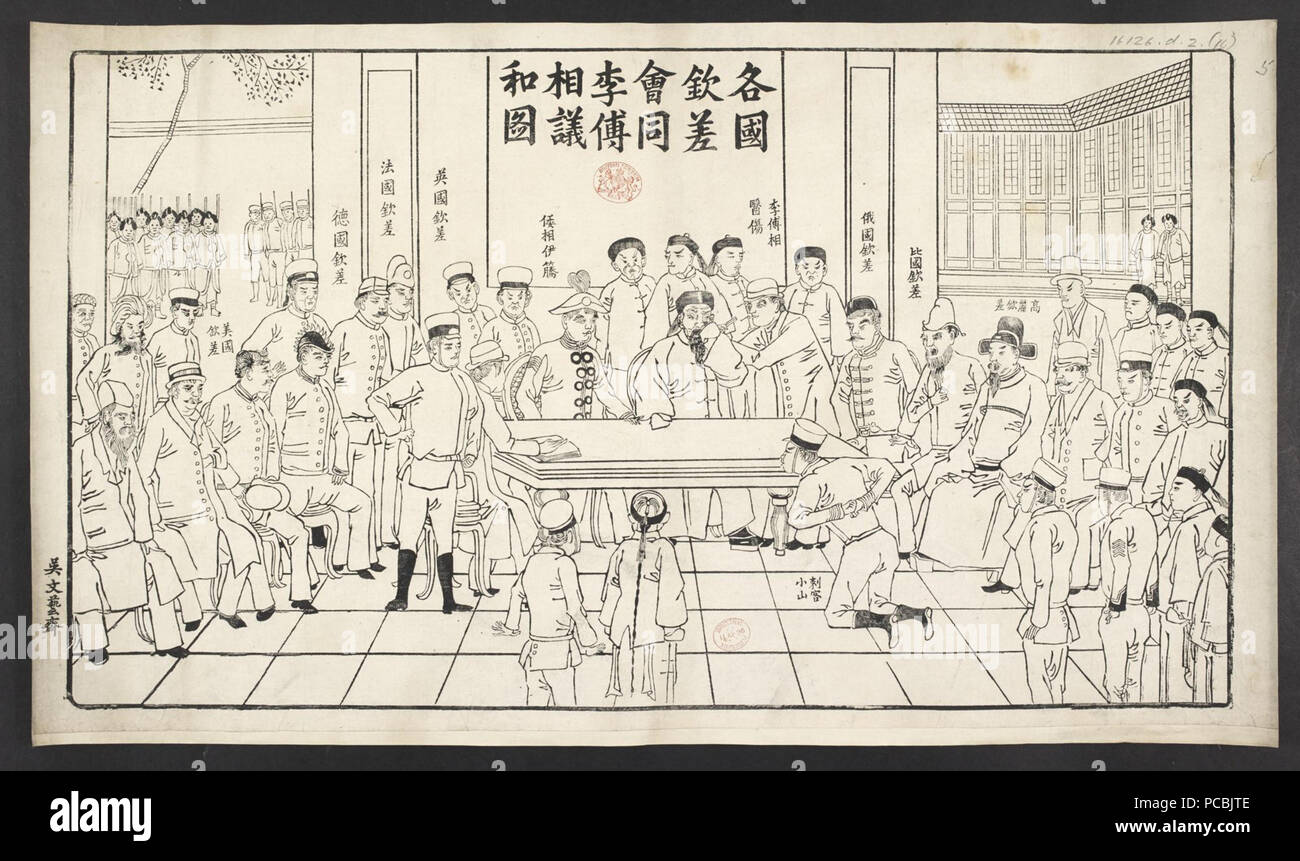 各國
欽差
會同
李傅
相議
和圖
李傅相
醫傷
俄國欽差
比國欽差
高麗欽差
倭相伊藤
英國欽差
法國欽差
德國欽差
美國
欽差
刺客
小山
吳文藝齋
16126.d.2.(11)
5
a
alamy
alamy stock photo
PCBJTE
www.alamy.com